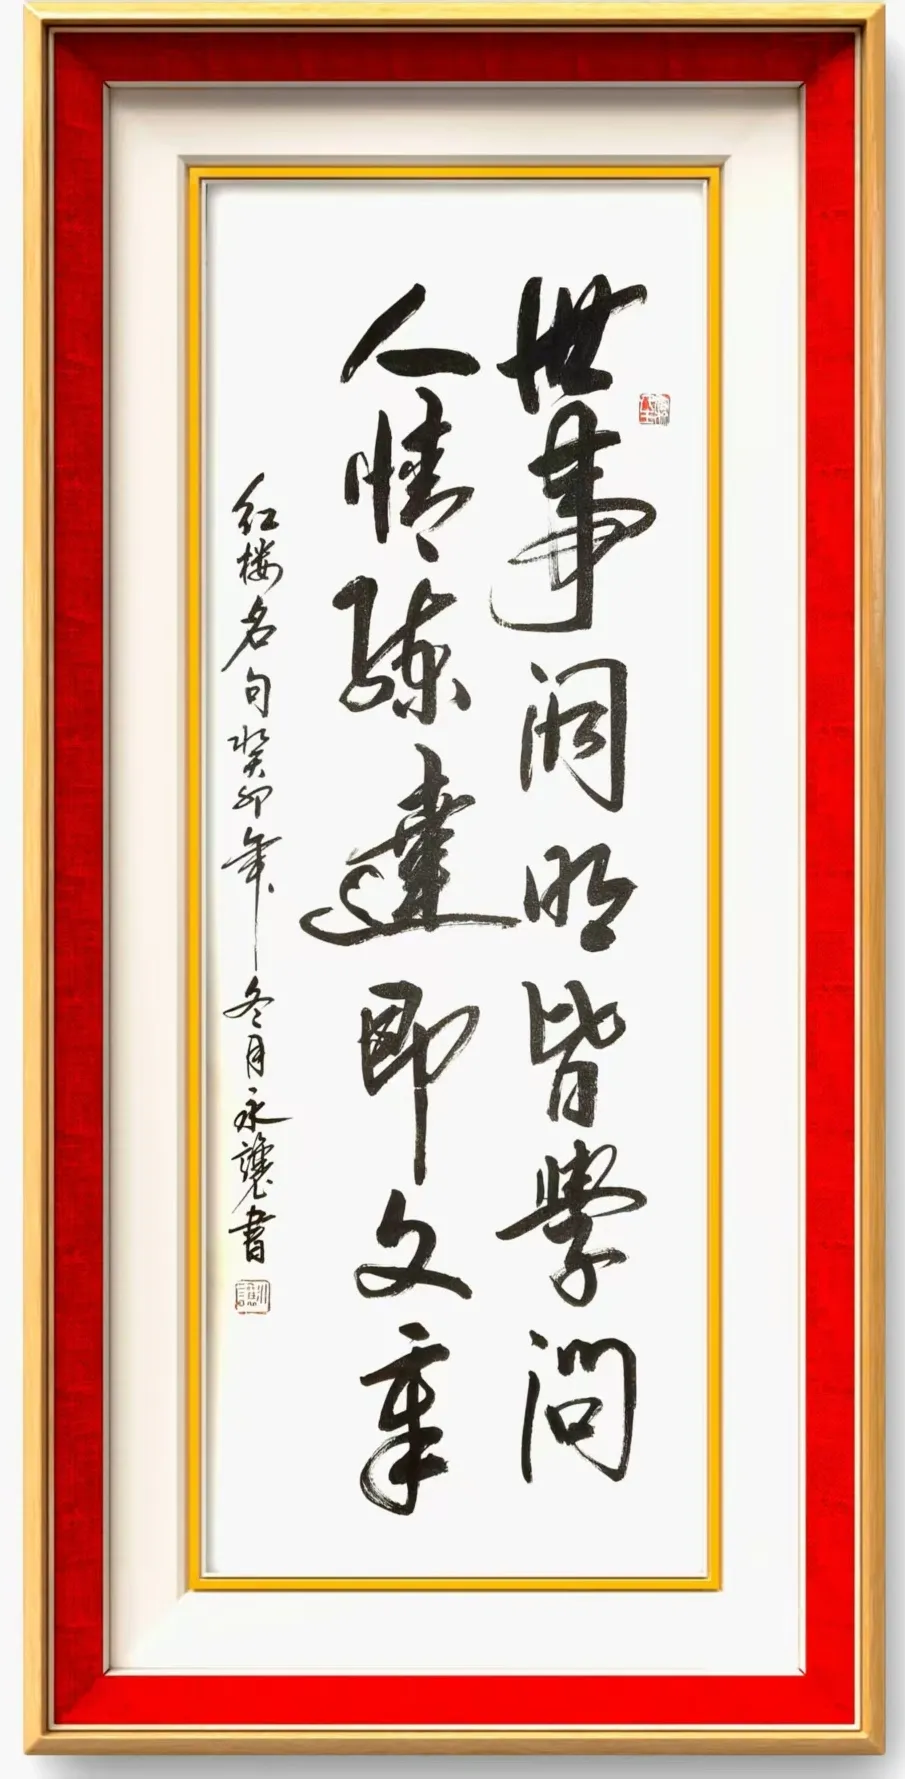 世事洞明皆學問
人情練達即文章
红楼名句癸卯年冬月永讓書